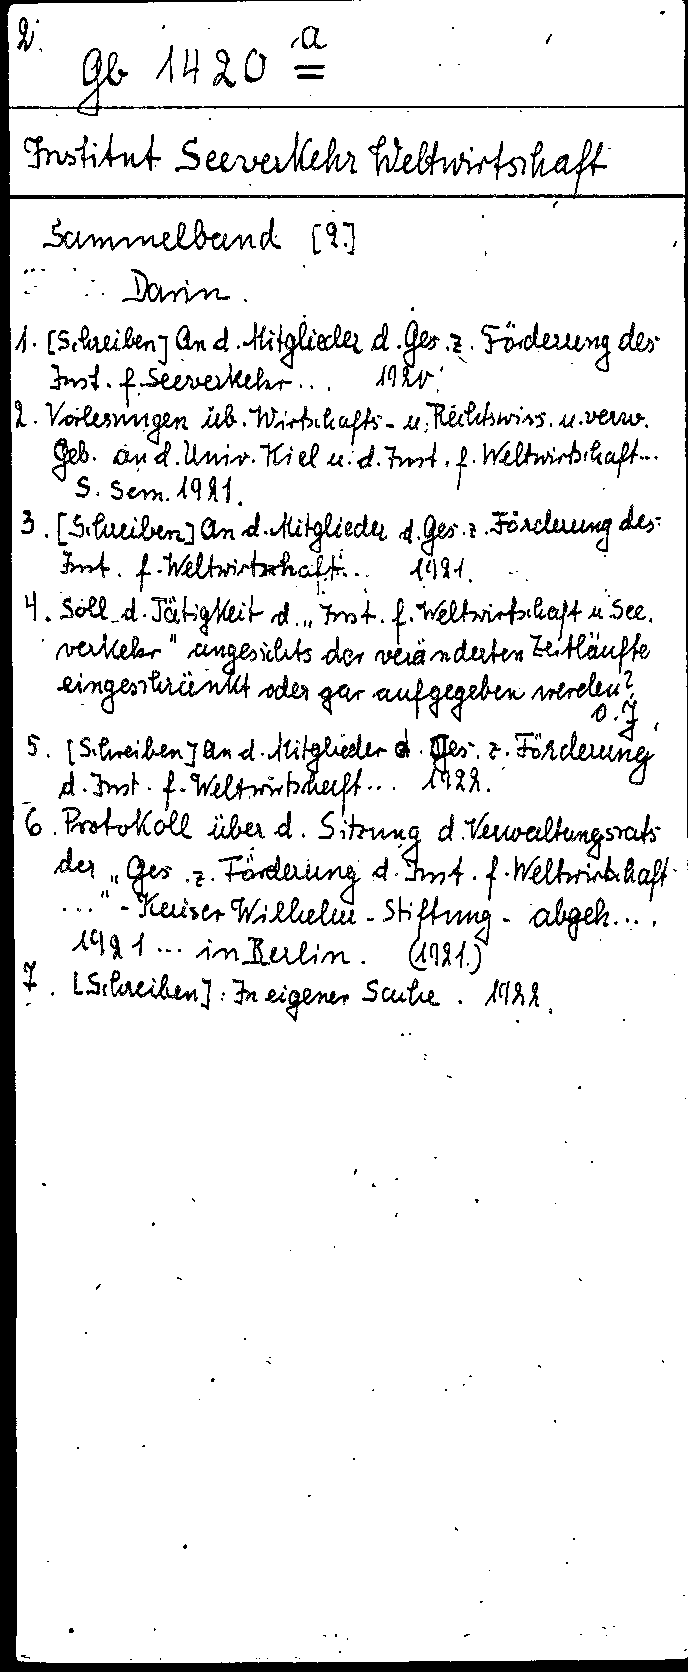 2.
Gb 1420 a
Institut Seeverkehr Weltwirtschaft
Sammelband [2.]
Darin.
1. [Schreiben] An d. Mitglieder d. Ges. z. Förderung des
Inst. f. Seeverkehr... 1920.
2. Vorlesungen üb. Wirtschafts- u. Rechtswiss. u. verw.
Geb. an d. Univ. Kiel u. d. Inst. f. Weltwirtschaft...
S. Sem. 1921.
3. [Schreiben] An d. Mitglieder d. Ges. z. Förderung des
Inst. f. Weltwirtschaft... 1921.
4. Soll d. Tätigkeit d. „Inst. f. Weltwirtschaft u See.
verkehr" angesichts der veränderten Zeitläufte
eingeschränkt oder gar aufgegeben werden?
o. J.
5. [Schreiben] An d. Mitglieder d. Ges. z. Förderung
d. Inst. f. Weltwirtschaft... 1922.
6. Protokoll über d. Sitzung d. Verwaltungsrats
der „Ges. z. Förderung d. Inst. f. Weltwirtschaft
..." - Kaiser Wilhelm - Stiftung - abgeh...
1921 ... in Berlin. (1921.)
7. [Schreiben]: In eigener Sache. 1922.